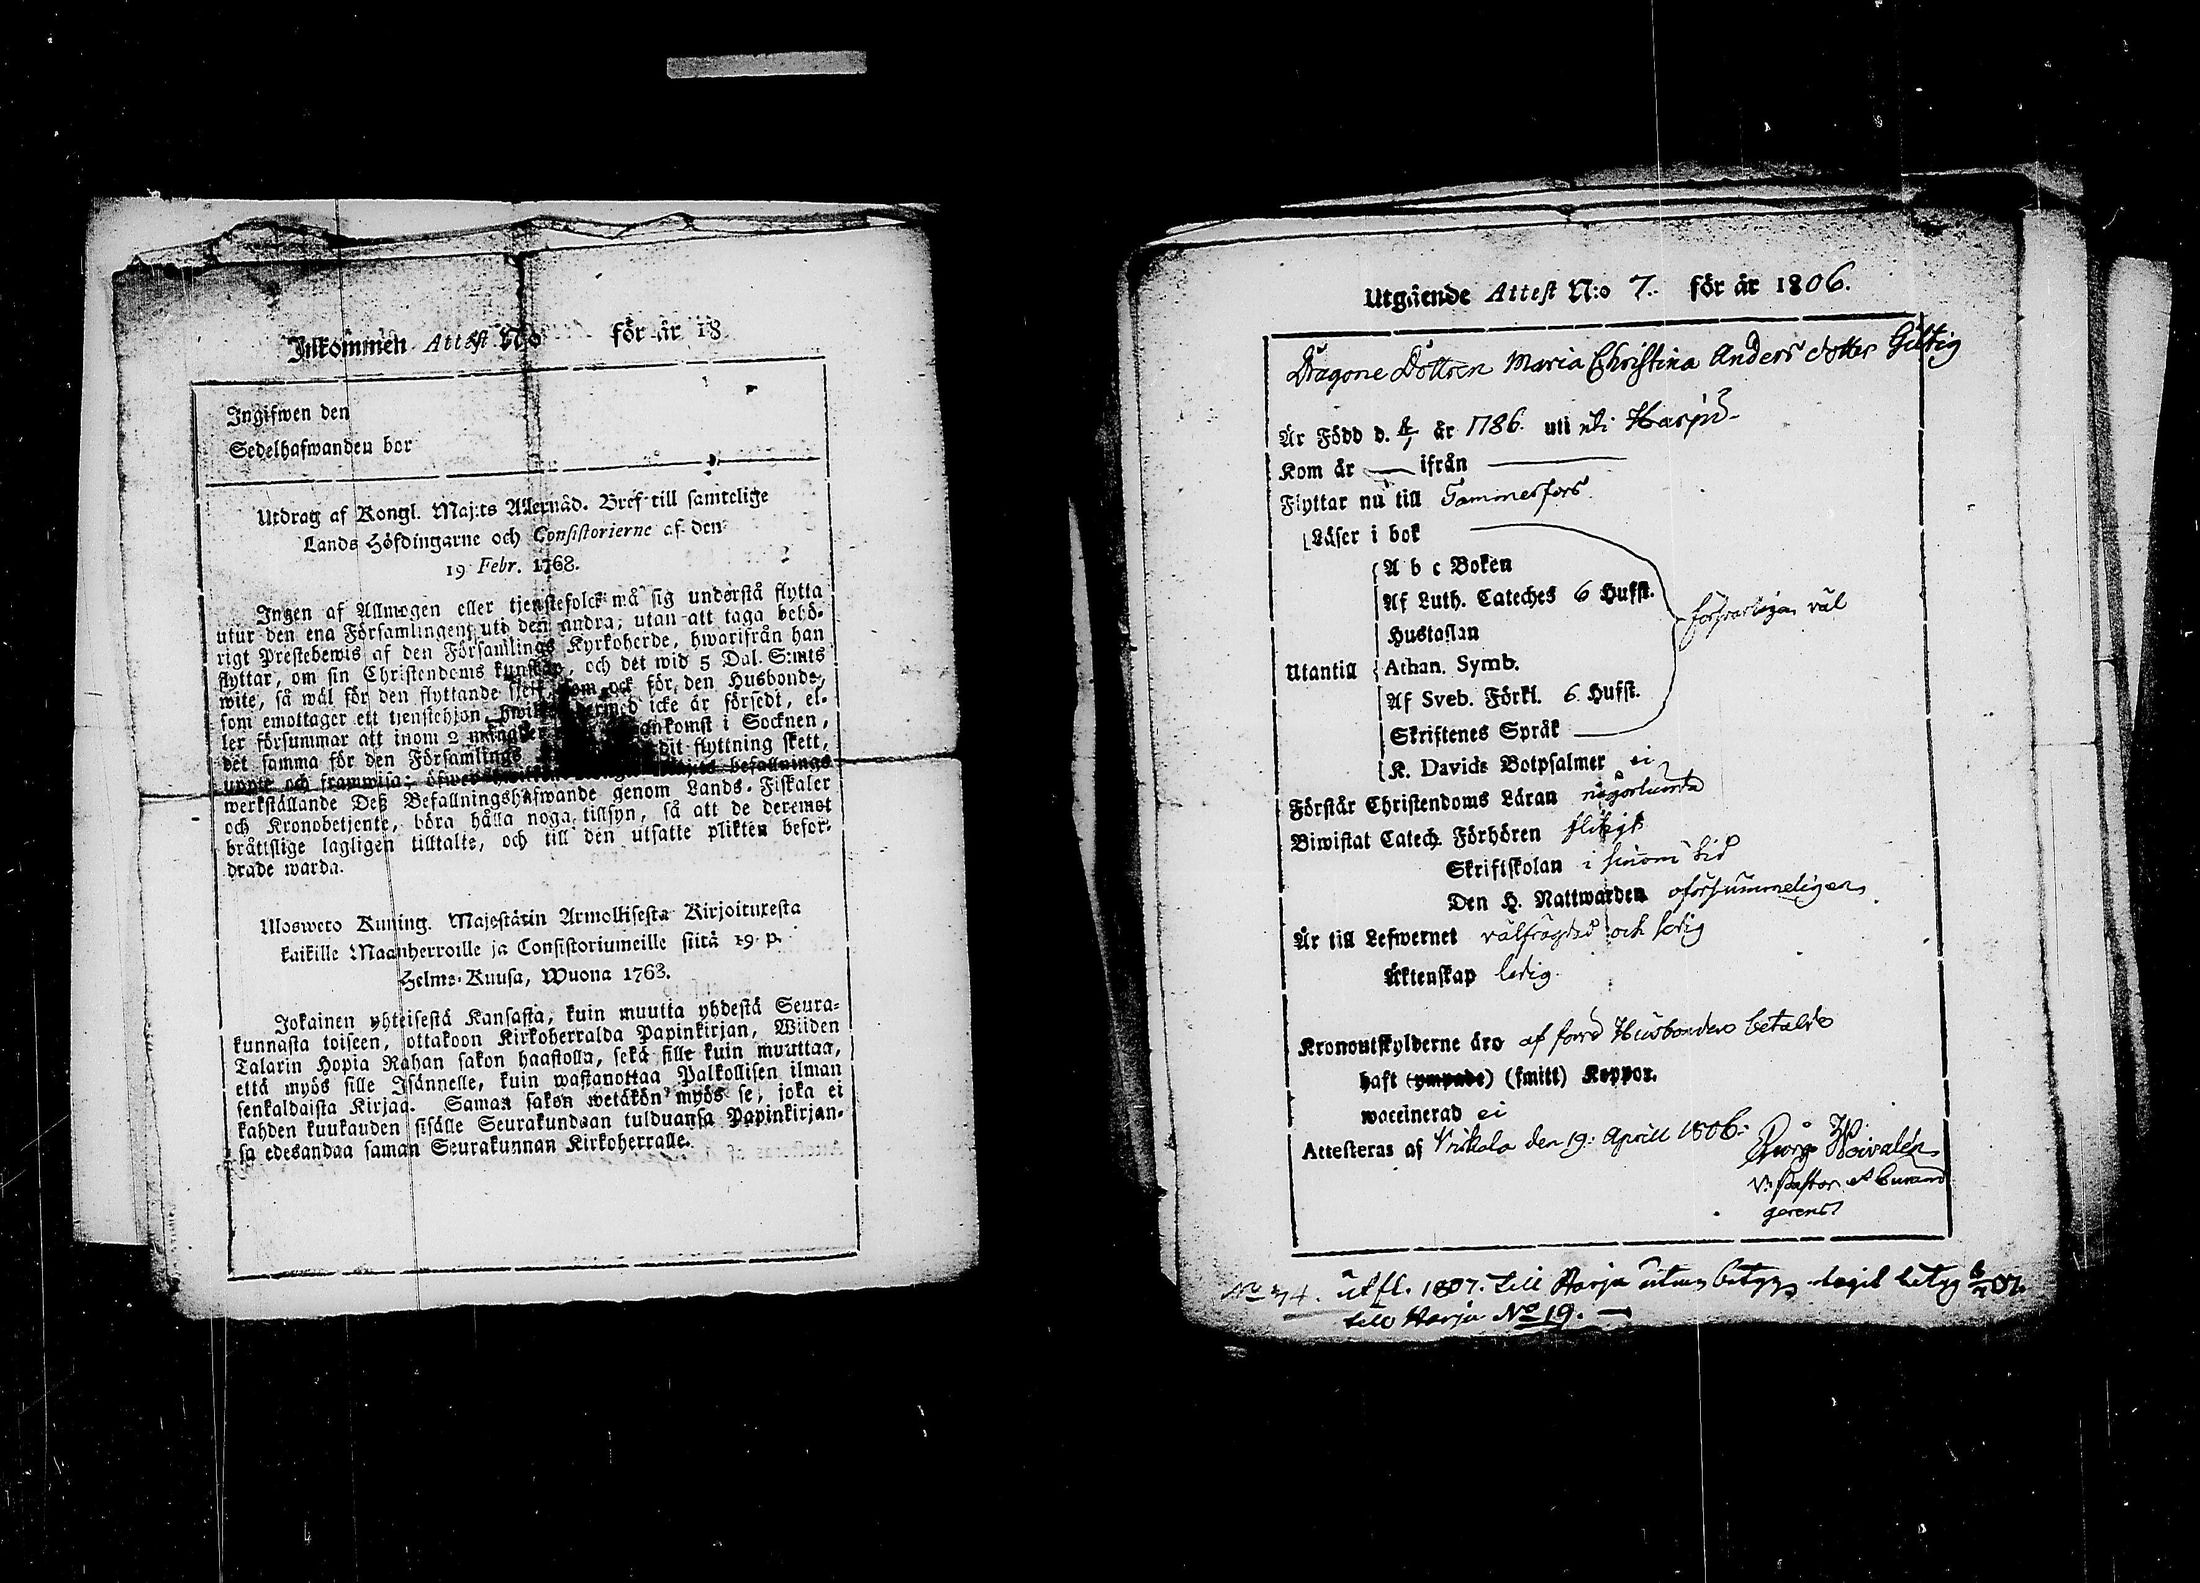 Inkommen Attest N:o för år 18
Ingifwen den
Sedelhafwanden bor
Utdrag af Kongl. Maj:ts Allernåd. Bref till samtelige
Lands Höfdingarne och Consistorierne af den
19 Febr. 1768.
Ingen af Allmogen eller tjenstefolck må sig understå flytta
utur den ena Församlingen uti den andra; utan att taga behö-
rigt Prestebewis af den Församlings Kyrkoherde, hwarifrån han
flyttar, om sin Christendoms kunskap, och det wid 5 Dal. S:mts
wite, så wäl för den flyttande sjelf, som ock för den Husbonde,
som emottager ett tjenstehjon, hwilket dermed icke är försedt, el-
ler försummar att inom 2 månader ankomst i Socknen,
det samma för den Församlings dit flyttning skett,
uppte och framwisa; öfwer hwilken Kongl. Maj:ts befallnings
werkställande Deß Befallningshafwande genom Lands-Fiskaler
och Kronobetjente, böra hålla noga tillsyn, så att de deremot
bråttslige lagligen tilltalte, och till den utsatte plikten befor-
drade warda.
Ulosweto Kuning. Majestätin Armollisesta Kirjoituxesta
kaikille Maanherroille ja Consistoriumeille siitä 19 p.
Helme-Kuusa, Wuona 1763.
Jokainen yhteisestä Kansasta, kuin muutta yhdestä Seura-
kunnasta toiseen, ottakoon Kirkoherralda Papinkirjan, Wiiden
Talarin Hopia Rahan sakon haastolla, sekä sille kuin muuttaa,
että myös sille Isännelle, kuin wastanottaa Palkollisen ilman
senkaldaista Kirjaa. Saman sakon wetäkön myös se, joka ei
kahden kuukauden sisälle Seurakundaan tulduansa Papinkirjan-
sa edesandaa saman Seurakunnan Kirkoherralle.
Utgående Attest N:o 7. för år 1806.
Dragone Dottren Maria Christina Anders dotter Giltig
Är Född d. år 1786. uti
Kom år — ifrån —
Flyttar nu till Tammerfors.
Läser i bok
A b c Boken
Af Luth. Cateches 6 Hufst.
Hustaflan
försvarligen väl
Utantill Athan. Symb.
Af Sveb. Förkl. 6 Hufst.
Skriftenes Språk
K. Davids Botpsalmer ei
Förstår Christendoms Läran någorlunda
Biwistat Catech. Förhören flitigt
Skriftskolan i sinom tid
Den H. Nattwarden oförsummeligen
Är till Lefwernet välfrägdad och ledig
Äktenskap ledig.
Kronoutskylderne äro af förra Husbonden betalde
haft (ympade) (smitt) Koppor.
waccinerad ei
Attesteras af den 19. Aprill 1806.
V. Pastor et Curam
gerens
utfl. 1807. till Harju utan betyg, tagit betyg
till Harju No 19. —